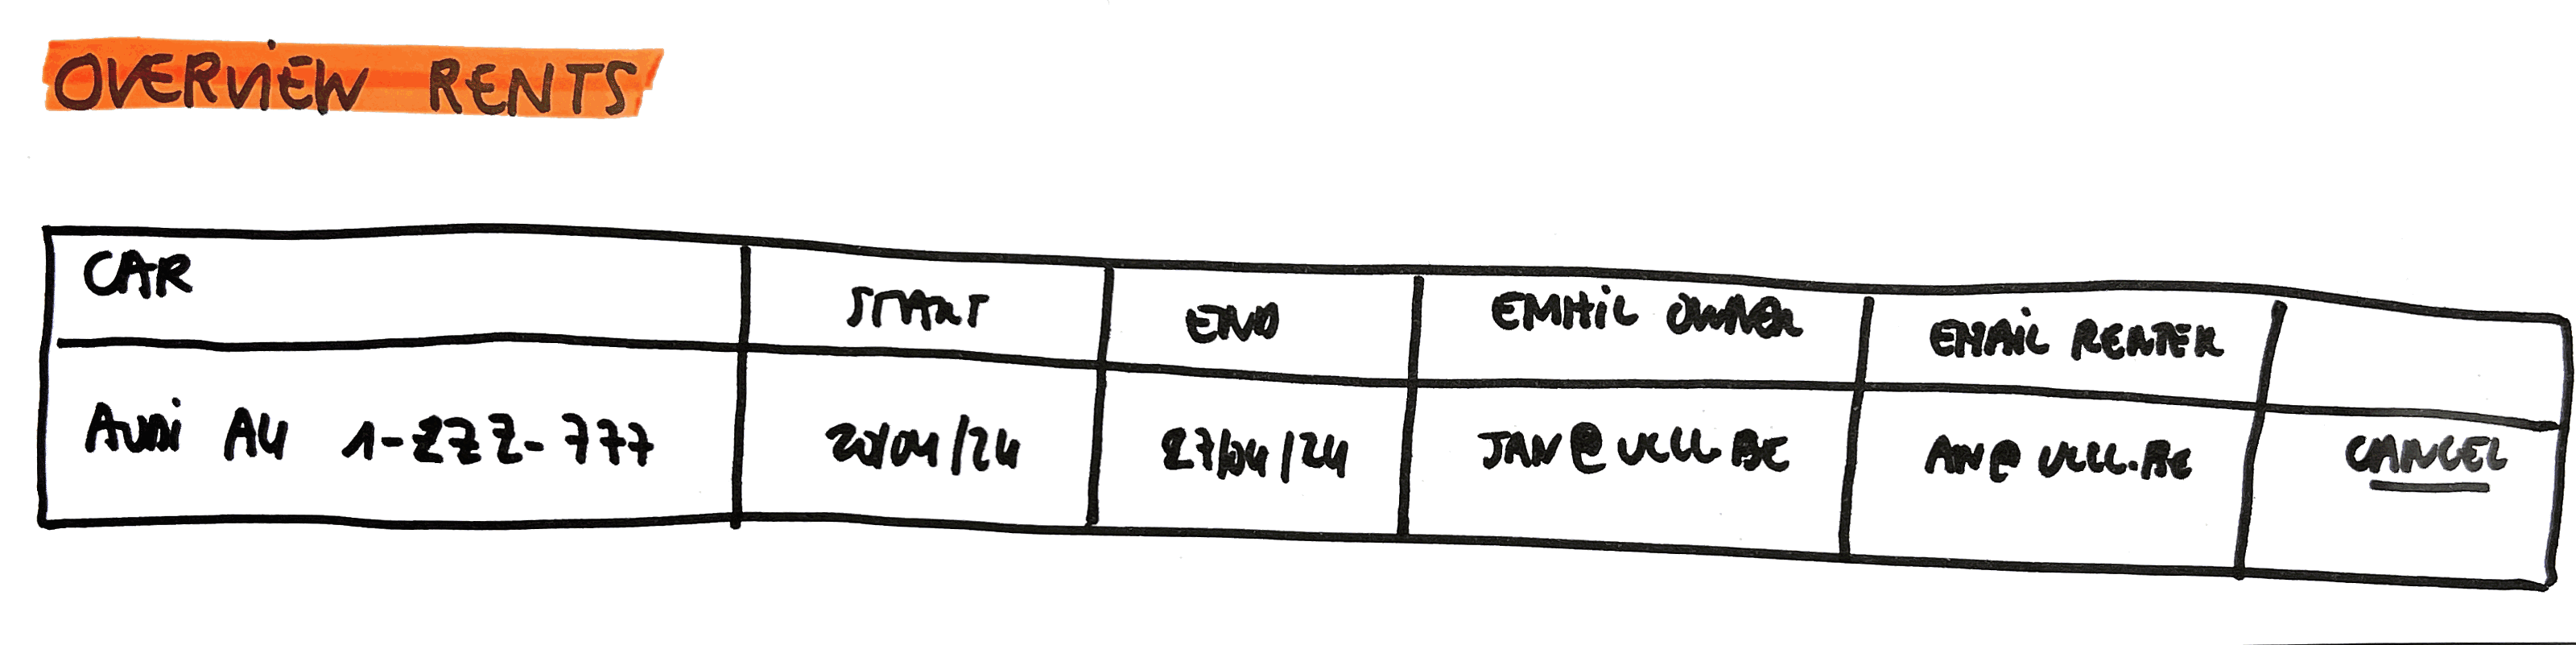 OVERVIEW RENTS
CAR START END EMAIL OWNER EMAIL RENTER
AUDI A4 1-ZZZ-777 20/04/24 27/04/24 JAN@UCLL.BE AN@UCLL.BE CANCEL